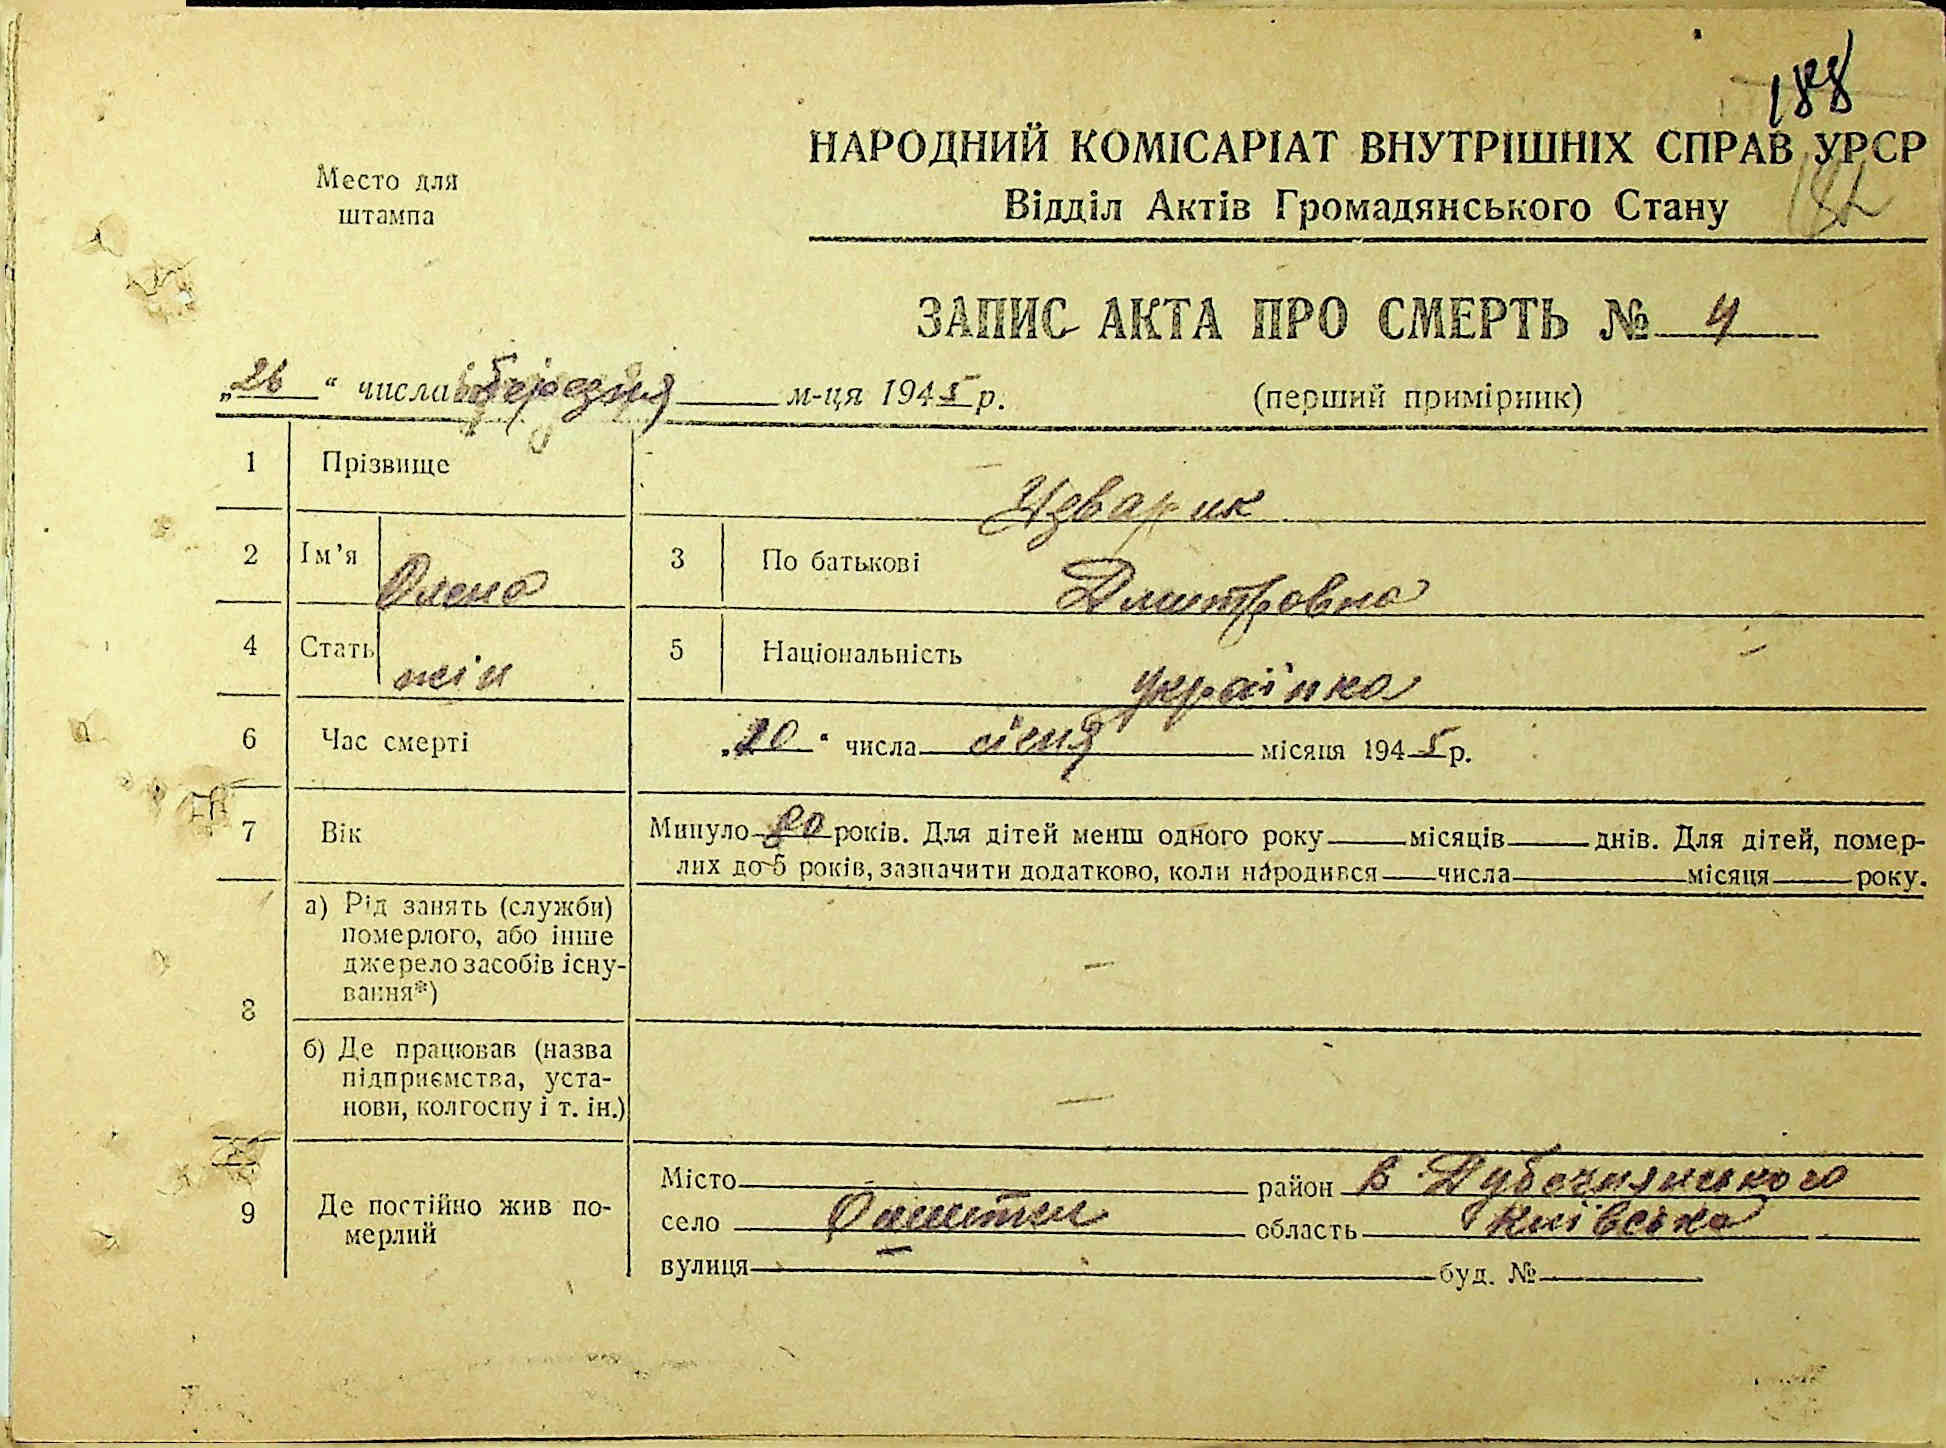 188
НАРОДНИЙ КОМІСАРІАТ ВНУТРІШНІХ СПРАВ УРСР
Место для штампа
Відділ Актів Громадянського Стану
ЗАПИС АКТА ПРО СМЕРТЬ № 4
„26“ числа березня м-ця 1945 р.
(перший примірник)
1 Прізвище Изварик
2 Ім’я Олена 3 По батькові Дмитровна
4 Стать жін 5 Національність українка
6 Час смерті „20“ числа січня місяця 1945 р.
7 Вік Минуло 80 років. Для дітей менш одного року місяців днів. Для дітей, помер-
лих до 5 років, зазначити додатково, коли народився числа місяця року.
8 а) Рід занять (служби)
померлого, або інше
джерело засобів існу-
вання*) —
б) Де працював (назва
підприємства, уста-
нови, колгоспу і т. ін.) —
9 Де постійно жив по-
мерлий
Місто район В Дубечнянського
село область Київська
вулиця — буд. №